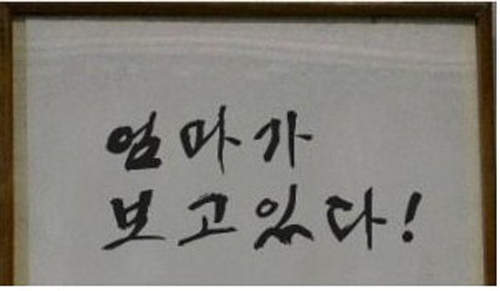 엄마가
보고있다!